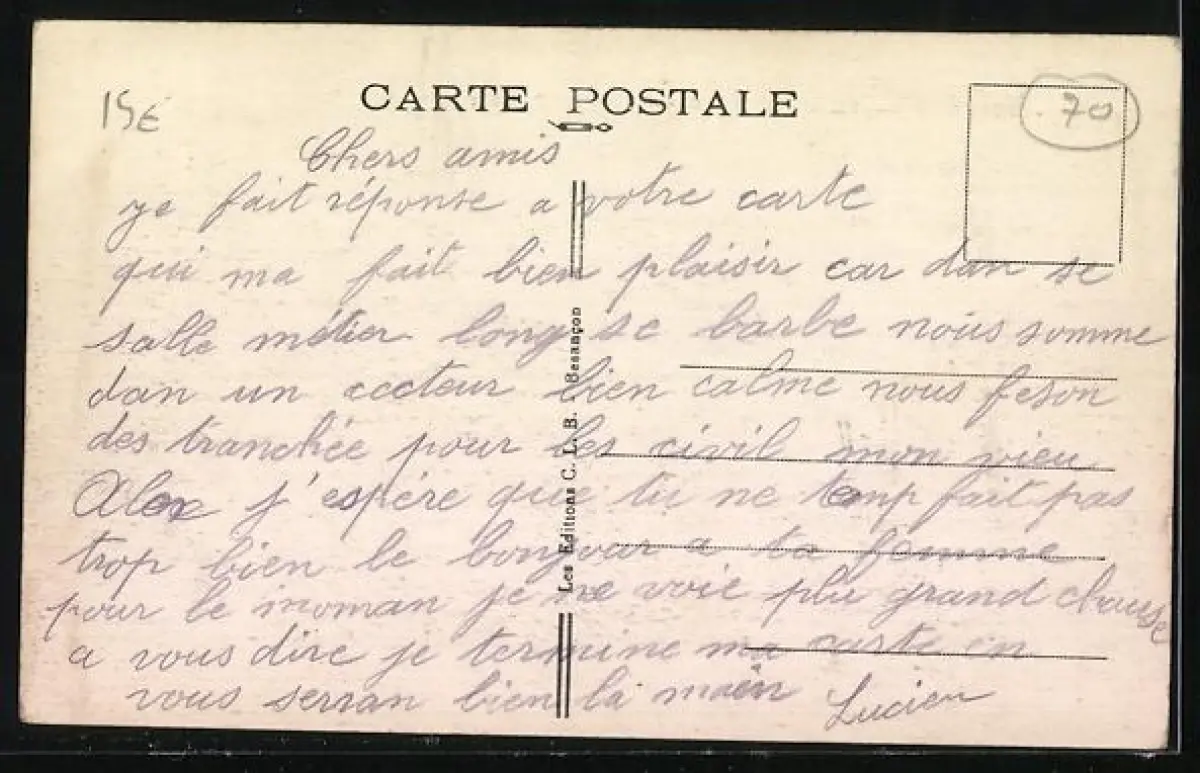 15€
CARTE POSTALE
70
Chers amis
ye fait réponse a votre carte
qui ma fait bien plaisir car dan se
salle métier long se barbe nous somme
dan un cecteur bien calme nous feson
des tranchée pour les civil mon vieu
Alex j'espére que tu ne temp fait pas
trop bien le bonjour a ta femme
pour le moman je ne voie plu grand chause
a vous dire je termine ma carte en
vous serran bien la main Lucien
Les Editions C. L. B. Besançon